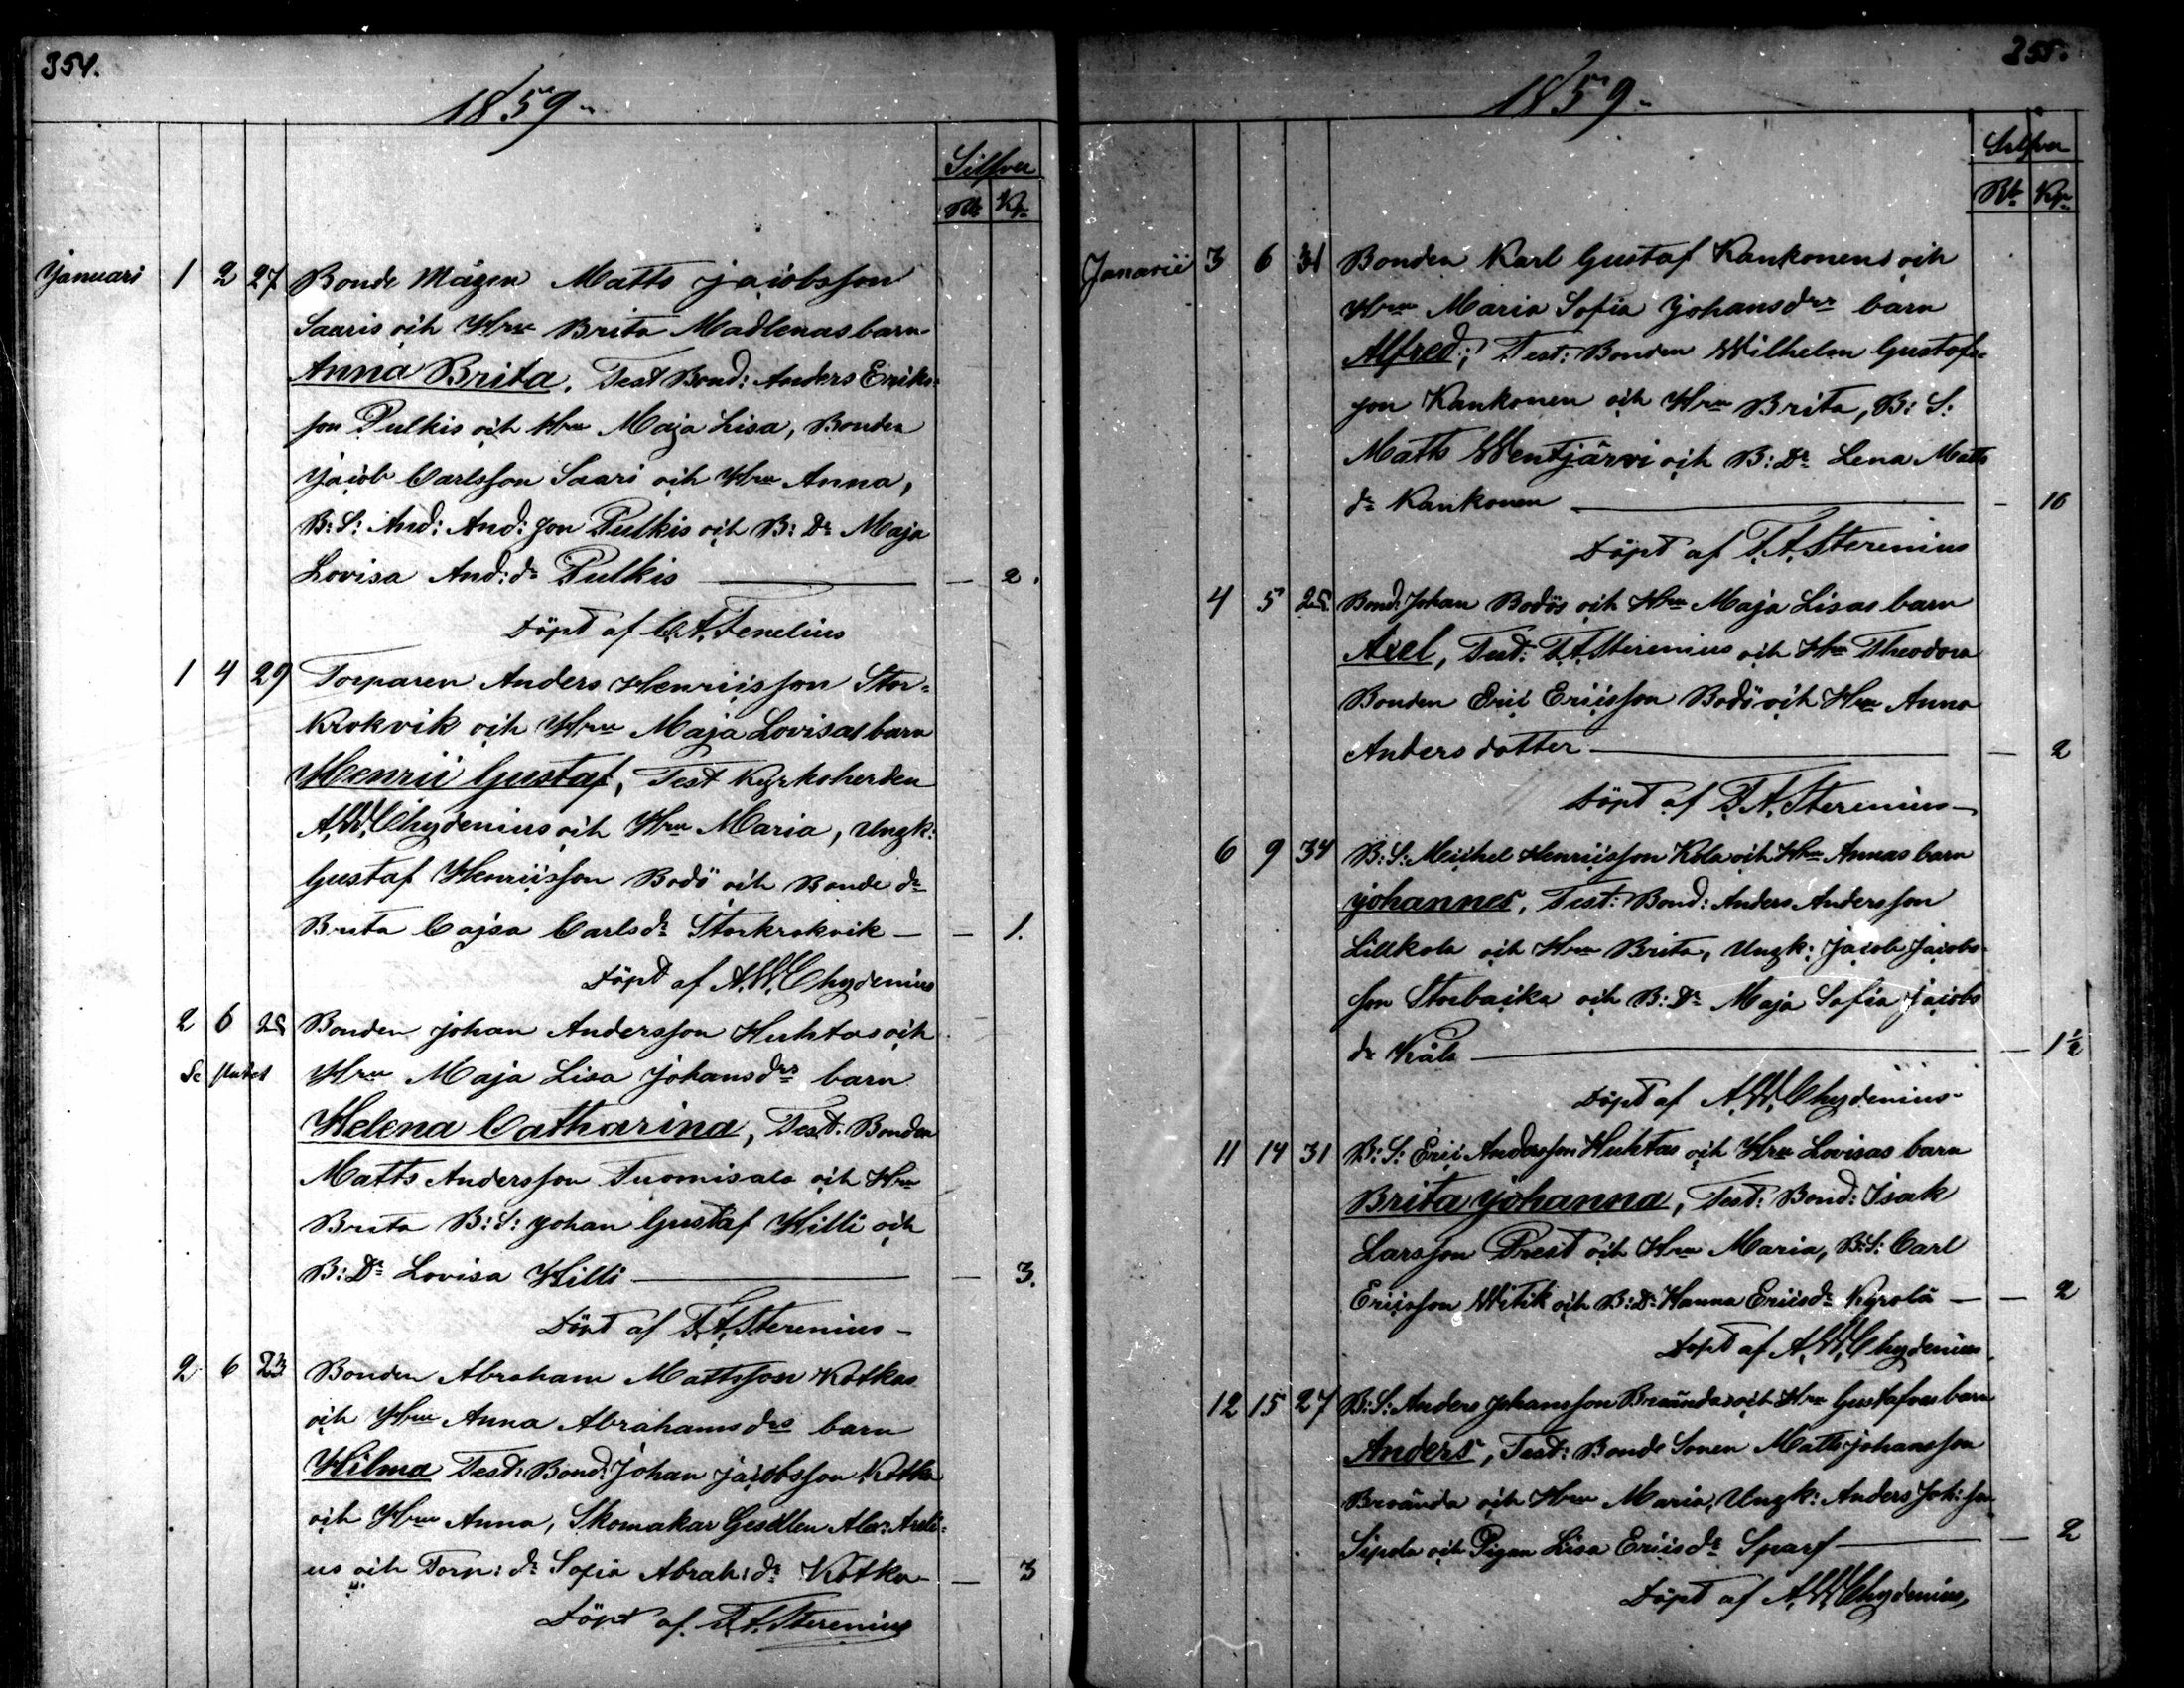 354.
1859.
Silfver
Rb Kp
Januari 1 2 27 Bonde Mågen Matts Jacobsson
Saaris och Hru Brita Madlenas barn
Anna Brita, Test Bond: Anders Eriks-
son Pulkis och Hru Maja Lisa, Bonden
Jacob Carlsson Saari och Hru Anna,
B: S: And: And: son Pulkis och B: Dr Maja
Lovisa And: dr Pulkis — — 2.
Döpt af C. A. Fenelius
1 4 29 Torparen Anders Henricsson Stor-
krokvik och Hru Maja Lovisas barn
Henric Gustaf, Test Kyrkoherden
A. W. Chydenius och Hru Maria, Ungk:
Gustaf Henricsson Bodö och Bonde dr
Brita Cajsa Carlsdr Storkrokvik — — 1.
Döpt af A. W. Chydenius
2 6 25 Bonden Johan Andersson Huhtas och
Hru Maja Lisa Johansdrs barn
Helena Catharina, Test: Bonden
Matts Andersson Tuomisala och Hru
Brita B: S: Johan Gustaf Hilli och
B: Dr Lovisa Hilli — — 3.
Döpt af F. A. Sterenius
2 6 23 Bonden Abraham Mattsson Kotkas
och Hru Anna Abrahamsdrs barn
Hilma Test: Bond: Johan Jacobsson Kotka
och Hru Anna, Skomakar Gesällen Alex:
us och Torp: dr Sofia Abrah: dr Kotka — — 3
Döpt af F. A. Sterenius
355.
1859.
Silfver
Rb Kp
Januarii 3 6 31 Bonden Karl Gustaf Kankonens och
Hru Maria Sofia Johansdrs barn
Alfred; Test: Bonden Wilhelm Gustafs-
son Kankonen och Hru Brita, B: S:
Matts Wentjärvi och B: Dr Lena Matts
dr Kankonen — — 10
Döpt af F. A. Sterenius
4 5 25 Bond: Johan Bodös och Hru Maja Lisas barn
Axel, Test: F. A. Sterenius och Hru Theodora
Bonden Eric Ericsson Bodö och Hru Anna
Andersdotter — — 2
Döpt af F. A. Sterenius
6 9 34 B: S: Michel Henricsson Kola och Hru Annas barn
Johannes, Test: Bond: Anders Andersson
Lillkola och Hru Brita, Ungk: Jacob Jacobs-
son Storbacka och B: Dr Maja Sofia Jacobs
dr Kåla — — 1½
Döpt af A. W. Chydenius
11 14 31 B: S: Eric Andersson Huhtas och Hru Lovisas barn
Brita Johanna, Test: Bond: Isak
Larsson Prest och Hru Maria, B: S: Carl
Ericsson Witik och B: Dr Hanna Ericsdr Kyrolä — — 2
Döpt af A. W. Chydenius
12 15 27 B: S: Anders Johansson Brännkas och Hru Gustafvas barn
Anders, Test: Bonde Sonen Matts Johansson
och Hru Maria, Ungk: Anders Joh: son
Sipola och Pigan Lisa Ericsdr Sparf — — 2
Döpt af A. W. Chydenius